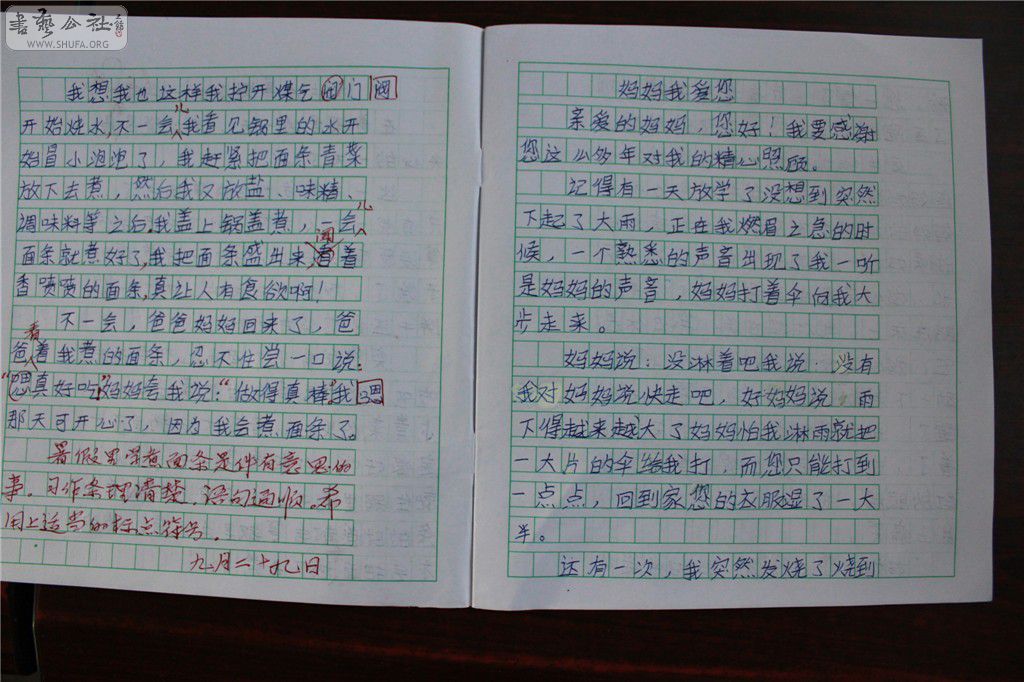 書藝公社
WWW.SHUFA.ORG
我想我也这样我拧开煤气阀门 阀
开始烧水,不一会儿我看见锅里的水开
始冒小泡泡了，我赶紧把面条青菜
放下去煮，然后我又放盐、味精、
调味料等之后,我盖上锅盖煮，一会儿
面条就煮好了,我把面条盛出来,闻着
香喷喷的面条,真让人有食欲啊！
不一会，爸爸妈妈回来了，爸
爸看着我煮的面条，忍不住尝一口说：
“嗯真好吃”妈妈夸我说：“做得真棒”,我 嗯
那天可开心了，因为我会煮面条了。
暑假里学煮面条是件有意思的
事。习作条理清楚，语句通顺。希
用上适当的标点符号。
九月二十九日
妈妈我爱您
亲爱的妈妈，您好！我要感谢
您这么多年对我的精心照顾。
记得有一天放学了没想到突然
下起了大雨，正在我燃眉之急的时
候，一个熟悉的声音出现了我一听
是妈妈的声音，妈妈打着伞向我大
步走来。
妈妈说：没淋着吧我说：没有
我对妈妈说快走吧，好妈妈说，雨
下得越来越大了妈妈怕我淋雨就把
一大片的伞给我打，而您只能打到
一点点，回到家您的衣服湿了一大
半。
还有一次，我突然发烧了烧到